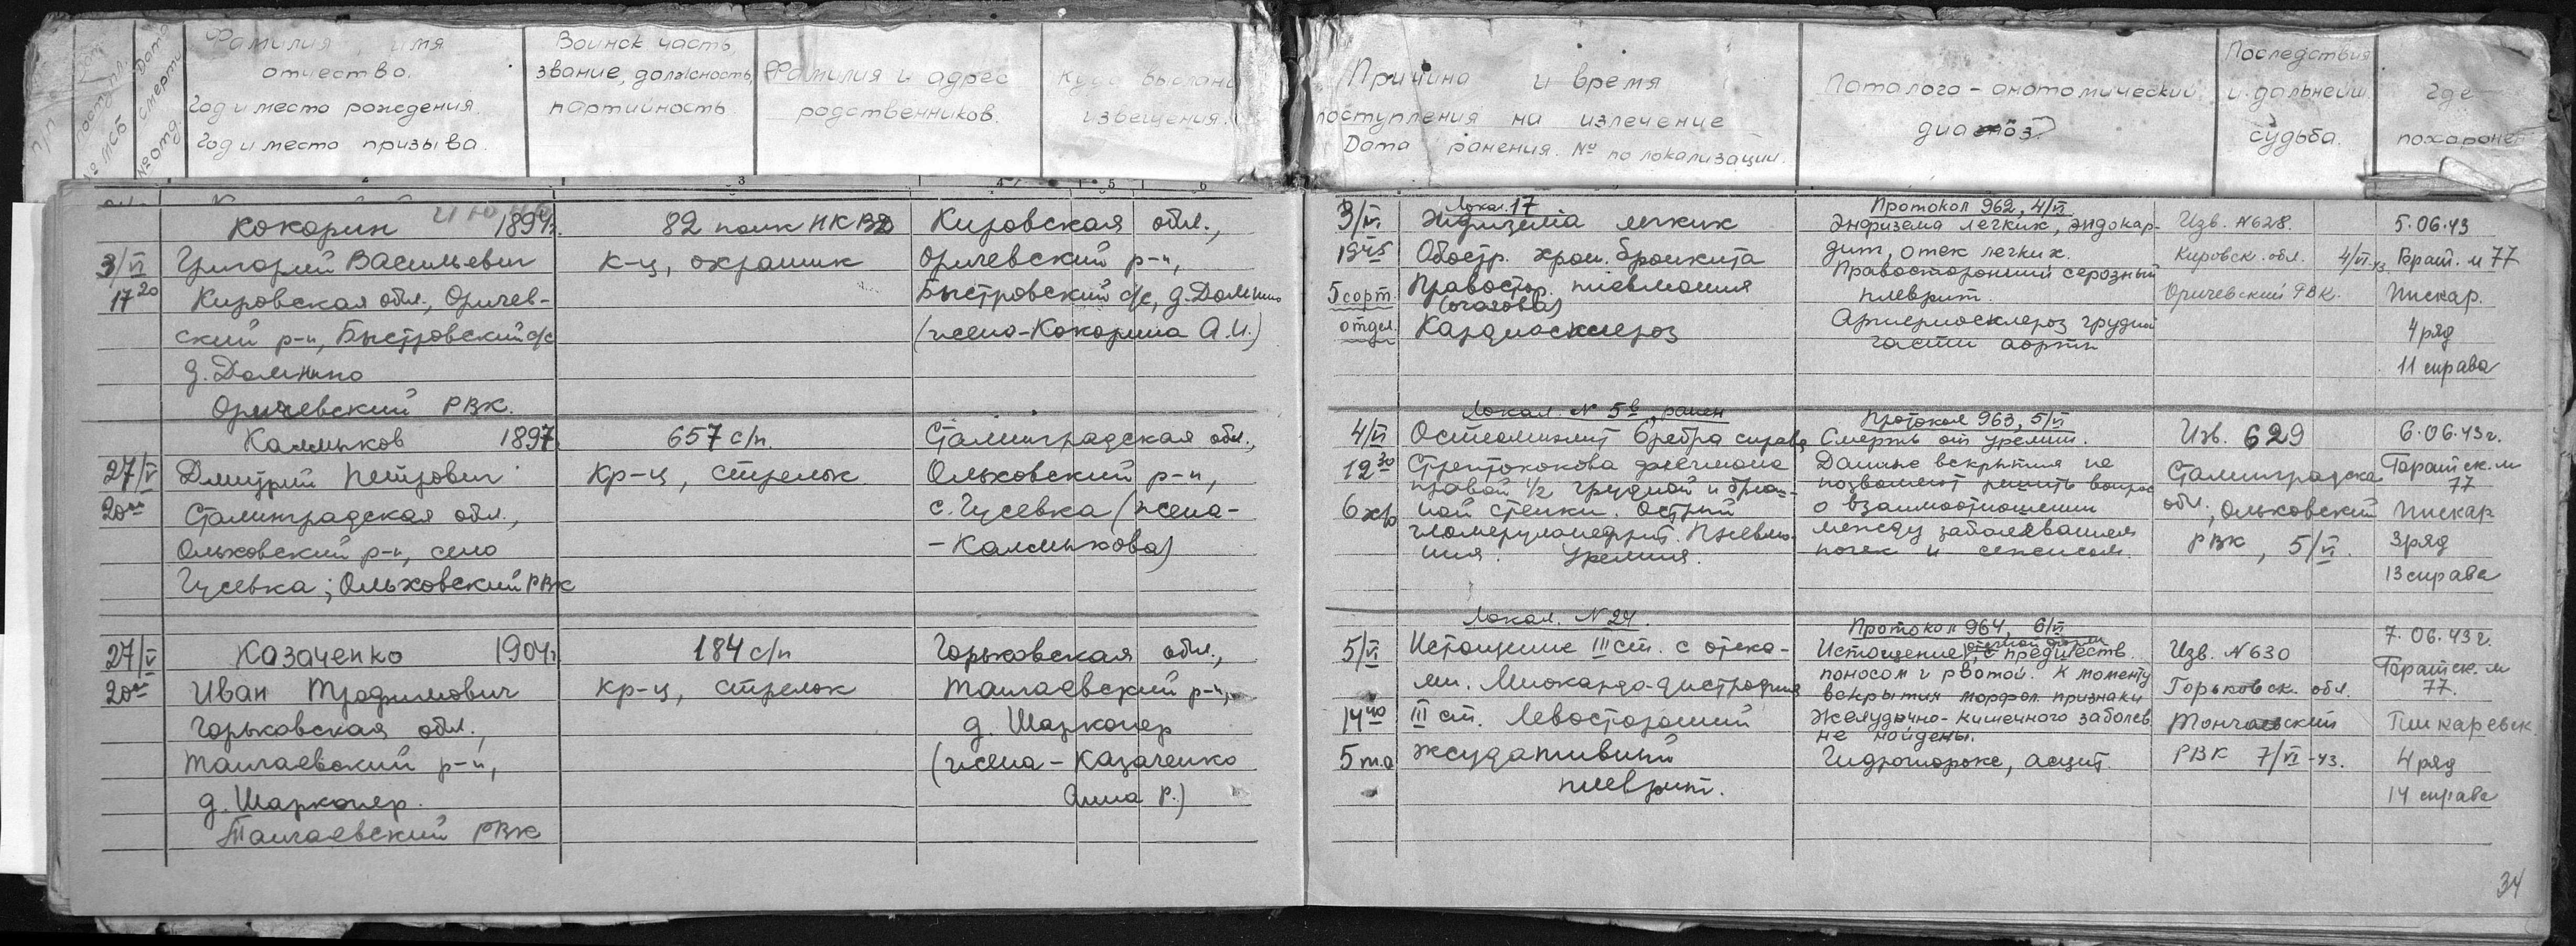 Фамилия, имя
отчество.
Год и место рождения.
Год и место призыва.
Воинск. часть,
звание, должность,
партийность
Фамилия и адрес
родственников.
Куда выслано
извещения.
Причина и время
поступления на излечение
Дата ранения. № по локализации.
Паталого-анатомический
диагноз
Последствия
и дальнейш.
судьба.
Где
похоронен
3/VI
17 20
Кокорин 1894г.
Григорий Васильевич
Кировская обл., Оричев-
ский р-н, Быстровский с/с
д.
Оричевский РВК.
82 полк НКВД
к-ц, охранник
Кировская обл.,
Оричевский р-н,
Быстровский с/с, д.
(жена-Кокорина А.И.)
3/VI
19 45
5 сорт.
отдел.
Локал. 17
Эмфизема легких
Обостр. хрон. бронхита
Правостор. пневмония
(очаговая)
Кардиосклероз
Протокол 962, 4/VI
Энфизема легких, эндокар-
дит, отек легких.
Правосторонний серозный
плеврит.
Артериосклероз грудной
части аорты
Изв. №628.
Кировск. обл. 4/VI
Оричевский РВК.
5.06.43
Брат. м 77
Пискар.
4 ряд
11 справа
27/V
20 00
Калмыков 1897
Дмитрий Петрович
Сталинградская обл.,
Ольховский р-н, село
Гусевка; Ольховский РВК
657 с/п.
Кр-ц, стрелок
Сталинградская обл.,
Ольховский р-н,
с. Гусевка (жена-
-Калмыкова)
4/VI
12 30
6 х/о
Локал. № 5 в, ранен
Остеомиэлит 6 ребра справа
Стрептококова флегмона
правой 1/2 грудной и брюш-
ной стенки. Острый
гломерулонефрит. Пневмо-
ния. Уремия.
Протокол 963, 5/VI
Смерть от уремии.
Данные вскрытия не
позволяют решить вопрос
о взаимоотношении
между заболеванием
почек и сепсисом.
Изв. 629
Сталинградска
обл., Ольховский
РВК, 5/VI.
6.06.43г.
Братск. м
77
Пискар
3 ряд
13 справа
27/V
20 00
Казаченко 1904г
Иван Трофимович
Горьковская обл.,
р-н,
д.
РВК
184 с/п
Кр-ц, стрелок
Горьковская обл.,
р-н,
д.
(жена-Казаченко
Анна Р.)
5/VI
14 40
5 т.о
Локал. №24.
Истощение III ст. с отека-
ми. Миокардо-дистрофия
III ст. Левосторонний
эксудативный
плеврит.
Протокол 964, 6/VI
Истощение, с предшеств.
поносом и рвотой. К моменту
вскрытия морфол. признаки
желудочно-кишечного заболев.
не найдены.
Гидроторокс, асцит.
Изв. №630
Горьковск. обл.
РВК 7/VI-43.
7.06.43г.
Братск. м
77.
Пискаревск.
4 ряд
14 справа
34